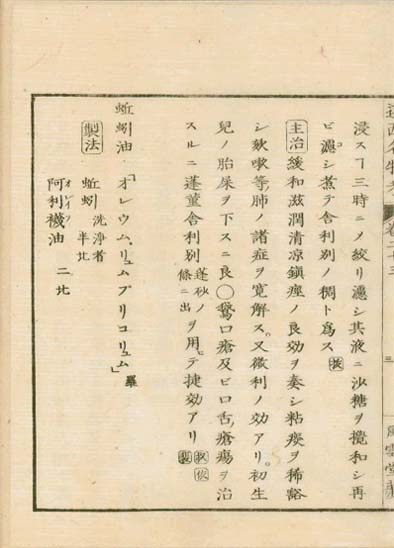 遠西名物考 卷二十三
浸スヿ三時ニメ絞リ濾シ其液ニ沙糖ヲ攪和シ再
ビ濾シ煮テ舎利別ノ稠ト為ス
主治 緩和滋潤清凉鎮痙ノ良効ヲ奏シ粘痰ヲ稀豁
シ欬嗽等肺ノ諸症ヲ寛解ス。又微利ノ効アリ。初生
兒ノ胎屎ヲ下スニ良〇鵞口瘡及ビ口舌瘡瘍ヲ治
スルニ蓬菫舎利別 蓬砂ノ條ニ出 ヲ用テ捷効アリ
蚯蚓油 「オレウム、リュムブリコリュム」羅
製法
蚯蚓 洗浄者 半比
阿利襪油 オレイフ 二比